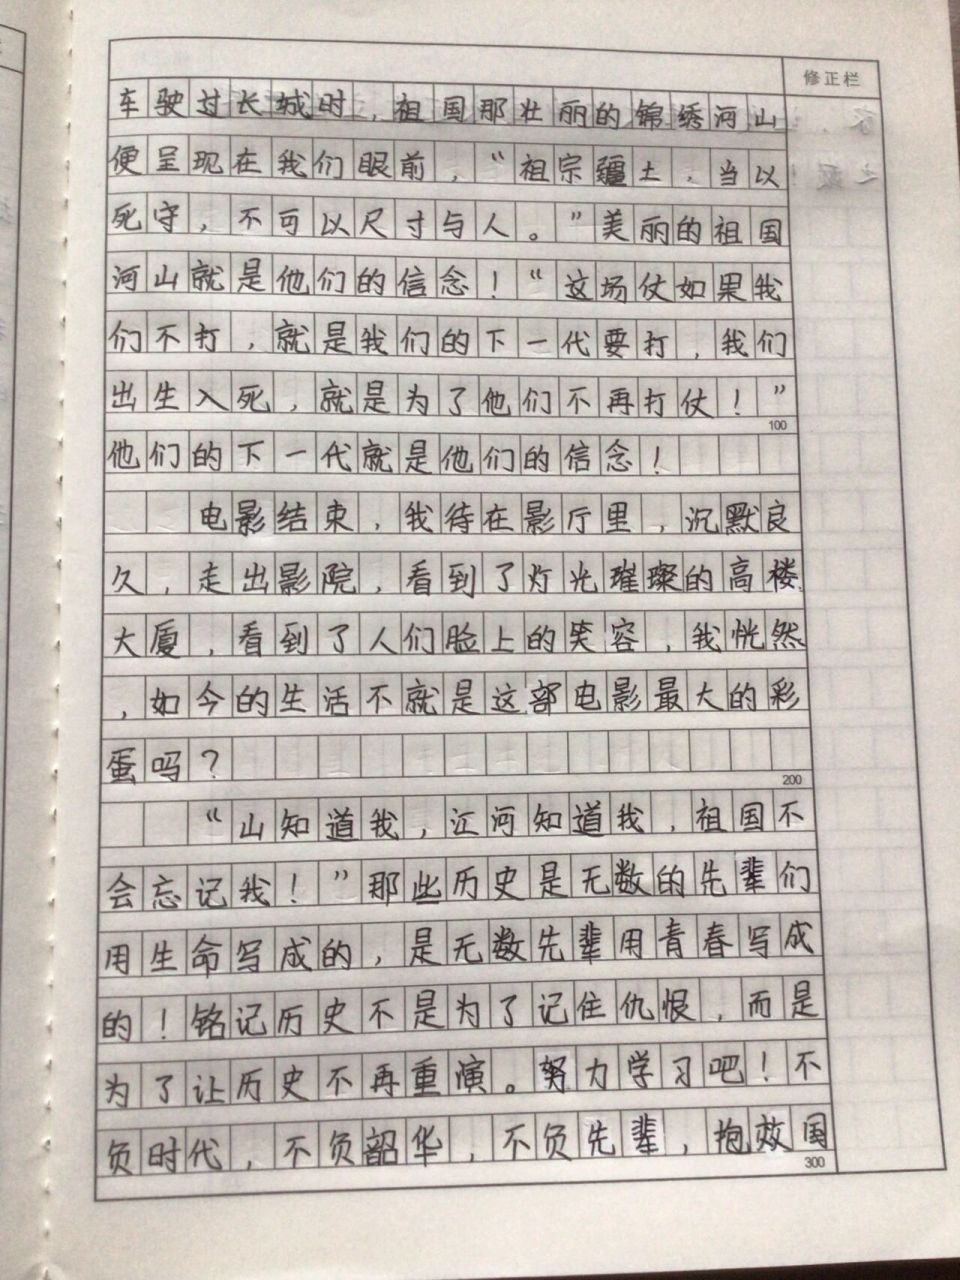 修正栏
车驶过长城时，祖国那壮丽的锦绣河山
便呈现在我们眼前，“祖宗疆土，当以
死守，不可以尺寸与人。”美丽的祖国
河山就是他们的信念！“这场仗如果我
们不打，就是我们的下一代要打，我们
出生入死，就是为了他们不再打仗！”
100
他们的下一代就是他们的信念！
电影结束，我待在影厅里，沉默良
久，走出影院，看到了灯光璀璨的高楼
大厦，看到了人们脸上的笑容，我恍然
，如今的生活不就是这部电影最大的彩
蛋吗？
200
“山知道我，江河知道我，祖国不
会忘记我！”那些历史是无数的先辈们
用生命写成的，是无数先辈用青春写成
的！铭记历史不是为了记住仇恨，而是
为了让历史不再重演。努力学习吧！不
负时代，不负韶华，不负先辈，抱效国
300